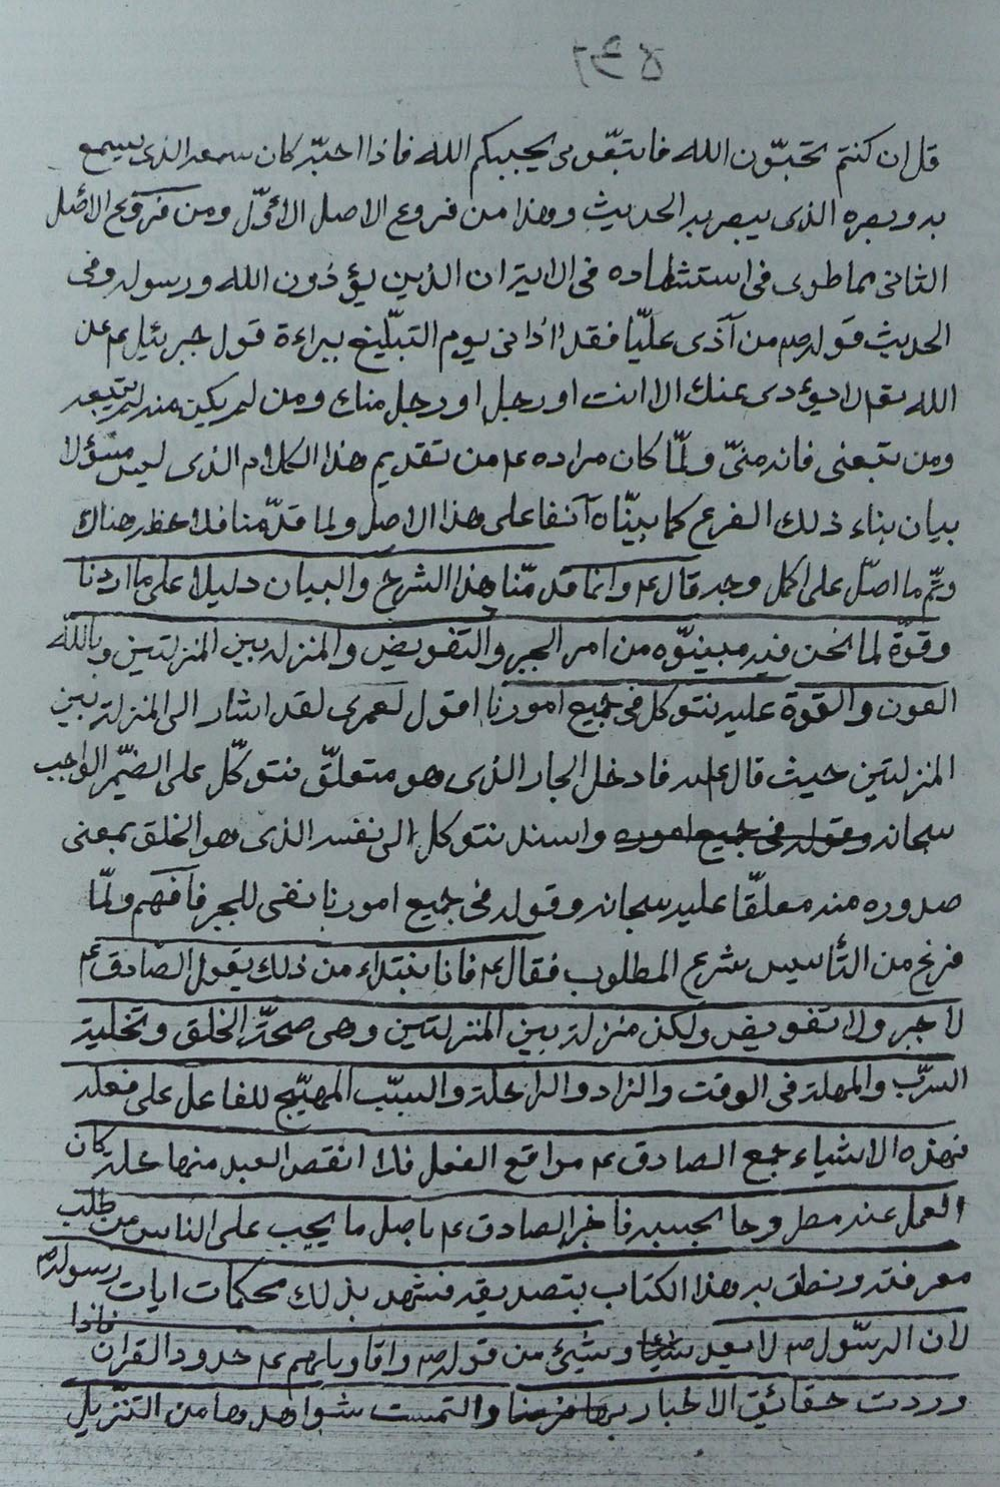 قل ان كنتم تحبّون الله فاتبعونى يحببكم الله فاذا احبّه كان سمعه الذى يسمع
به وبصره الذى يبصر به الحديث وهذا من فروع الاصل الاوّل ومن فروع الاصل
الثانى مما طوى فى استشهاده فى الاية ان الذين يؤذون الله ورسوله وفى
الحديث قوله ص من آذى عليّا فقد اذانى يوم التبليغ ببراءة قول جبرئيل ع عن
الله تعم لا يؤدى عنك الا انت او رجل منك ومن لم يكن منه لم يتبعه
ومن تبعنى فانه منّى ولمّا كان مراده ع من تقديم هذا الكلام الذى ليس مسؤلا
بيان بناء ذلك الفرع كما بيّناه آنفا على هذا الاصل ولما قدّمنا فلاحظه هناك
وتمّ ما اصّل على اكمل وجه قال ع وانما قدّمنا هذا الشرح والبيان دليلا على ما اردنا
وقوّة لما نحن مبينوّه من امر الجبر والتفويض والمنزلة بين المنزلتين وبالله
العون والقوّة عليه نتوكل فى جميع امورنا اقول لعمرى لقد اشار الى المنزلة بين
المنزلتين حيث قال عليه فادخل الجار الذى هو متعلّق نتوكّل على الضمير الواجب
سبحانه وقوله فى جميع اموره واسند نتوكل الى نفسه الذى هو الخلق بمعنى
صدوره منه معلّقا عليه سبحانه وقوله فى جميع امورنا نفى للجبر فافهم ولمّا
فرغ من التأسيس شرع المطلوب فقال ع فانا نبتداء من ذلك بقول الصّادق ع
لا جبر ولا تفويض ولكن منزلة بين المنزلتين وهى صحّة الخلق وتخلية
السرّب والمهلة فى الوقت والزاد والراحلة والسبّب المهيّج للفاعل على فعله
فهذه الاشياء جمع الصادق ع مواقع الفعل فاذا انقص العبد منها خلة كان
العمل عنه مطروحا بحسبه فاخبر الصادق ع باصل ما يجب على الناس من طلب
معرفته ونطق به وهذا الكتاب بتصديقه فشهد بذلك محكمات ايات رسوله ص
لان الرسّول ص لا يعد شيئا وشئ من قوله ص واقاويلهم ع حدود القران فاذا
وردت حقائق الاخبار والتمست شواهدها من التنزيل